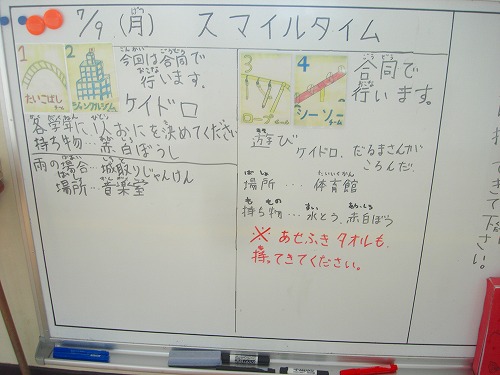 7/9 (月) スマイルタイム
1
たいこばし
2
ジャングルジム
今回は合同で
行います。
ケイドロ
各学年に1人おにを決めてください
持ち物…赤白ぼうし
雨の場合…城取りじゃんけん
場所…音楽室
3
ロープチーム
4
シーソーチーム
合同で
行います。
遊び
ケイドロ、だるまさんが
ころんだ。
場所…体育館
持ち物…水とう、赤白ぼう
※あせふきタオルも
持ってきてください。
て下さい。